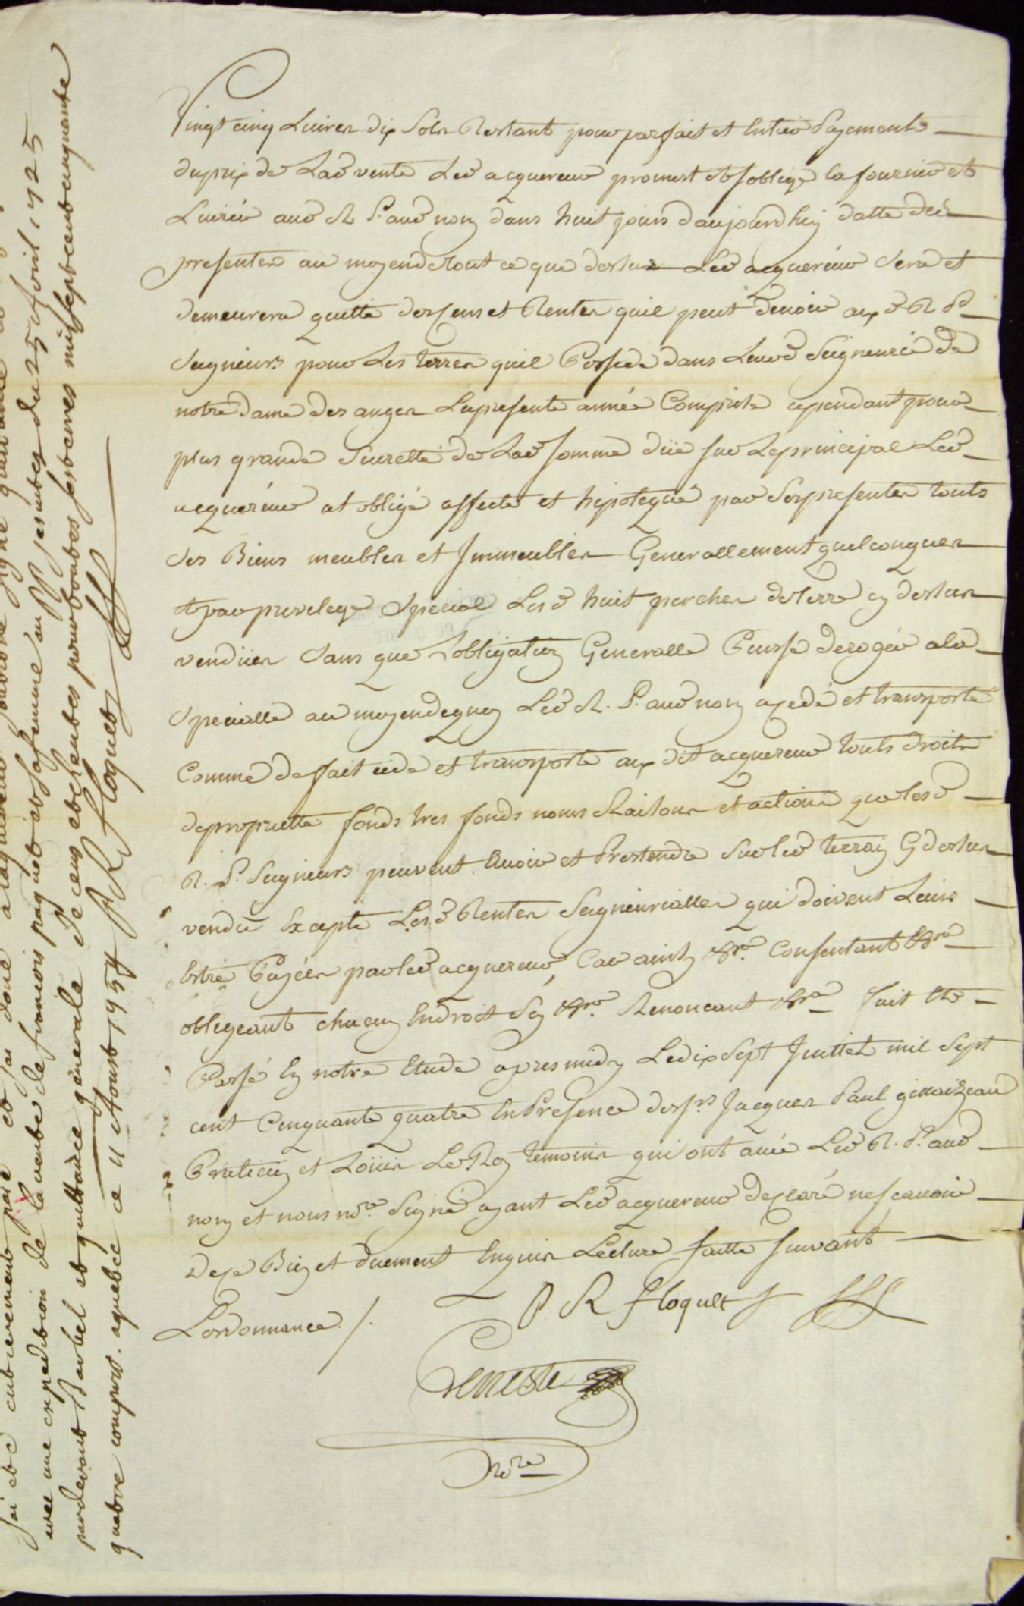 Vingt cinq Livres dix Sols Restant pour parfait et Entier Payement
du prix de Lad vente Led acquereur promet et s'oblige la fournir et
Livrer aud R P. aud nom dans huit jours d'aujourdhuy datte des
presentes au moyen de tout ce que dessus Led acquereur Sera et
demeurera quitte des Cens et Rentes quil peut devoir aux d R P
Seigneurs pour Les terres quil Possede dans Leurd Seigneurie de
notre dame des anges La presente année Comprise cependant pour
plus grande Seurette de Lad Somme düe sur Le principal Led
acquereur at obligé affecté et hipotequé par Ses presentes touts
Ses Biens meubles et Immeubles Generallement quelconques
et par privilege Special Lesd huit perches de terre cy dessus
vendües Sans que L'obligation Generalle Puisse deroger a la
Specialle au moyen de quoy Led R. P. aud nom a cedé et transporté
Comme de fait cede et transporte aux dit acquereur touts droits
de proprietté fonds tres fonds noms Raisons et actions que lesd
R. P. Seigneurs peuvent Avoir et Pretendre Sur led terrain Cy dessus
vendu Excepté Lesd Rentes Seigneurialles qui doivent Leurs
Estre Payées par led acquereur, Car ainsy &ra. Consentant &ra
obligeant chacun Endroit Soy &ra. Renoncant &ra Fait Et
Passé En notre Etude apres midy Le dix Sept Juillet mil Sept
cent Cinquante quatre En Presence des Srs Jacques Paul
Praticien et Loüis Le Roy temoins qui ont avec Led R. P. aud
nom et nous nore. Signé ayant Led acquereur declaré ne scavoir
de ce Bien et duement Enquis Lecture faitte Suivant
L'ordonnance ./.
P R Floquet J
Geneste
Nore
avec une expedition de la vente de francois paquet et sa femme aux jesuites du 25 Avril 1725
pardevant Barbel et quittance generale de cens et rentes pour toutes mil sept cent cinquante
quatre compris. a quebec ce 11 Aoust 1754 P R floquet J